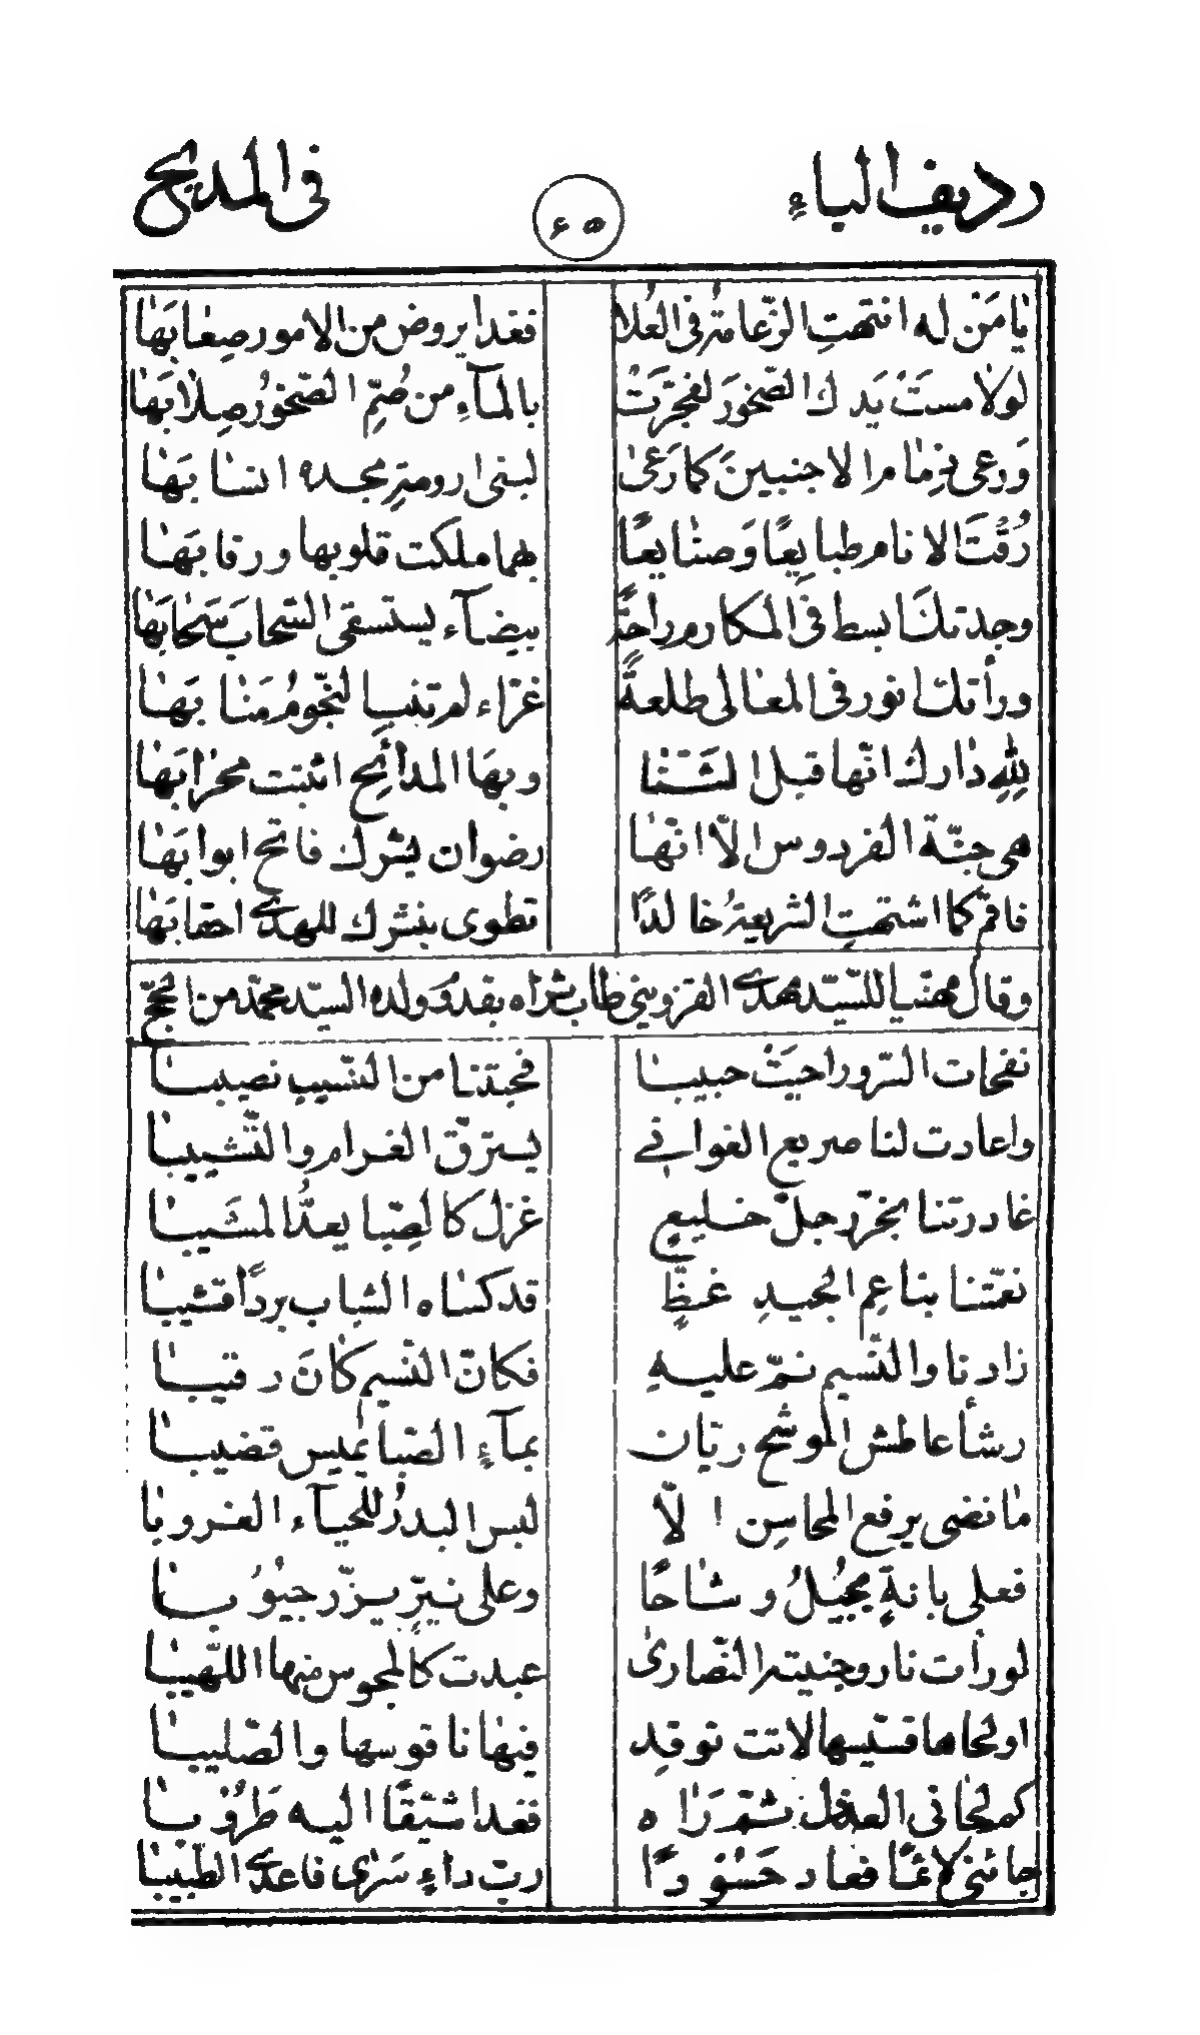 رديف الباء
٦٥
في المديح
يا مَن له انتهتِ الزّعامةُ في العُلا فغدا يروض من الامور صِعابَها
لولا مستَ يَدك الصّخورَ لفجّرَتْ بالمآءِ من صُمِّ الصّخورُ صِلابَها
وَرعى ذِمامرالاجنبينَ كما رَعىٰ لبنى ارومةِ مجده انسابَها
رُقْتَ الانام طبايعًا وَصنايعًا بهما ملكت قلوبها ورقابَها
وجدتك ابسط في المكارم راحةً بيضآء يستسقى السّحابَ سَحابَها
ورأتك انور في المعالى طلعةً غرّاء لم تنب النّجوم مَنابَها
للهِ دارك انّها قبل الثّنا وبها المدائح اثبتت محرابَها
هى جنّة الفردوس الّا انّها رضوان بشرك فاتح ابوابَها
فاقم كما اشتهتِ الشّريعةُ خالدًا تطوى بنشرك للهدى احقابَها
وقال مهنّيا للسّيّد مهدى القزوينى طاب ثراه بقدوم ولده السيّد محمّد من الحجّ
نفحات السّرور احيَتْ حبيبا فحبتنا من النّسيب نصيبا
واعادت لنا صريع الغوانى يسترقّ الغرام والتّشبيبا
غادرتنا بخرّ رجل خليعٍ غزل كالصِّبا يعدُّ المشَيبا
نعّتنا بناعِم الجيدِ غضٍّ قد كساه الشباب بردًا قشيبا
زارنا والنّسيم نمّ عليهِ فكانّ النّسيم كانَ رقيبا
رشأ عاطش الموشح ريّان بمآءِ الصّبا يميس قضيبا
ما نضى برقع المحاسن الّا لبس البدرُ للحيآء الغروبا
فعلى بانةٍ مجيُلُ وشاحًا وعلى نيّرٍ يزرّ جيُوُبا
لو رأت نار وجنيته النّصارىٰ عبدت كالمجوس منها اللّهيبا
او لحاها قسّيسها لاتت توقِد فيها ناقوسها والصّليبا
كم لحانى العذل ثمّ رَاٰه فغدا شيّقًا اليه طَرُوبا
جائنى لائمًا فعاد حَسُودًا ربّ داءٍ سَرىٰ فاعدى الطّبيبا